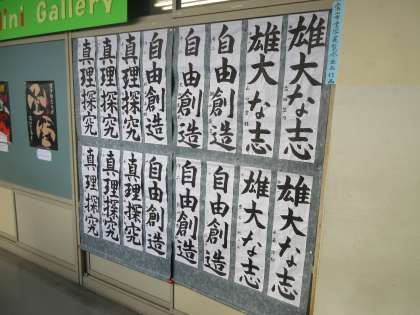 ini Gallery
雄大な志
雄大な志
自由創造
自由創造
自由創造
真理探究
真理探究
真理探究
雄大な志
雄大な志
自由創造
自由創造
自由創造
真理探究
真理探究
真理探究